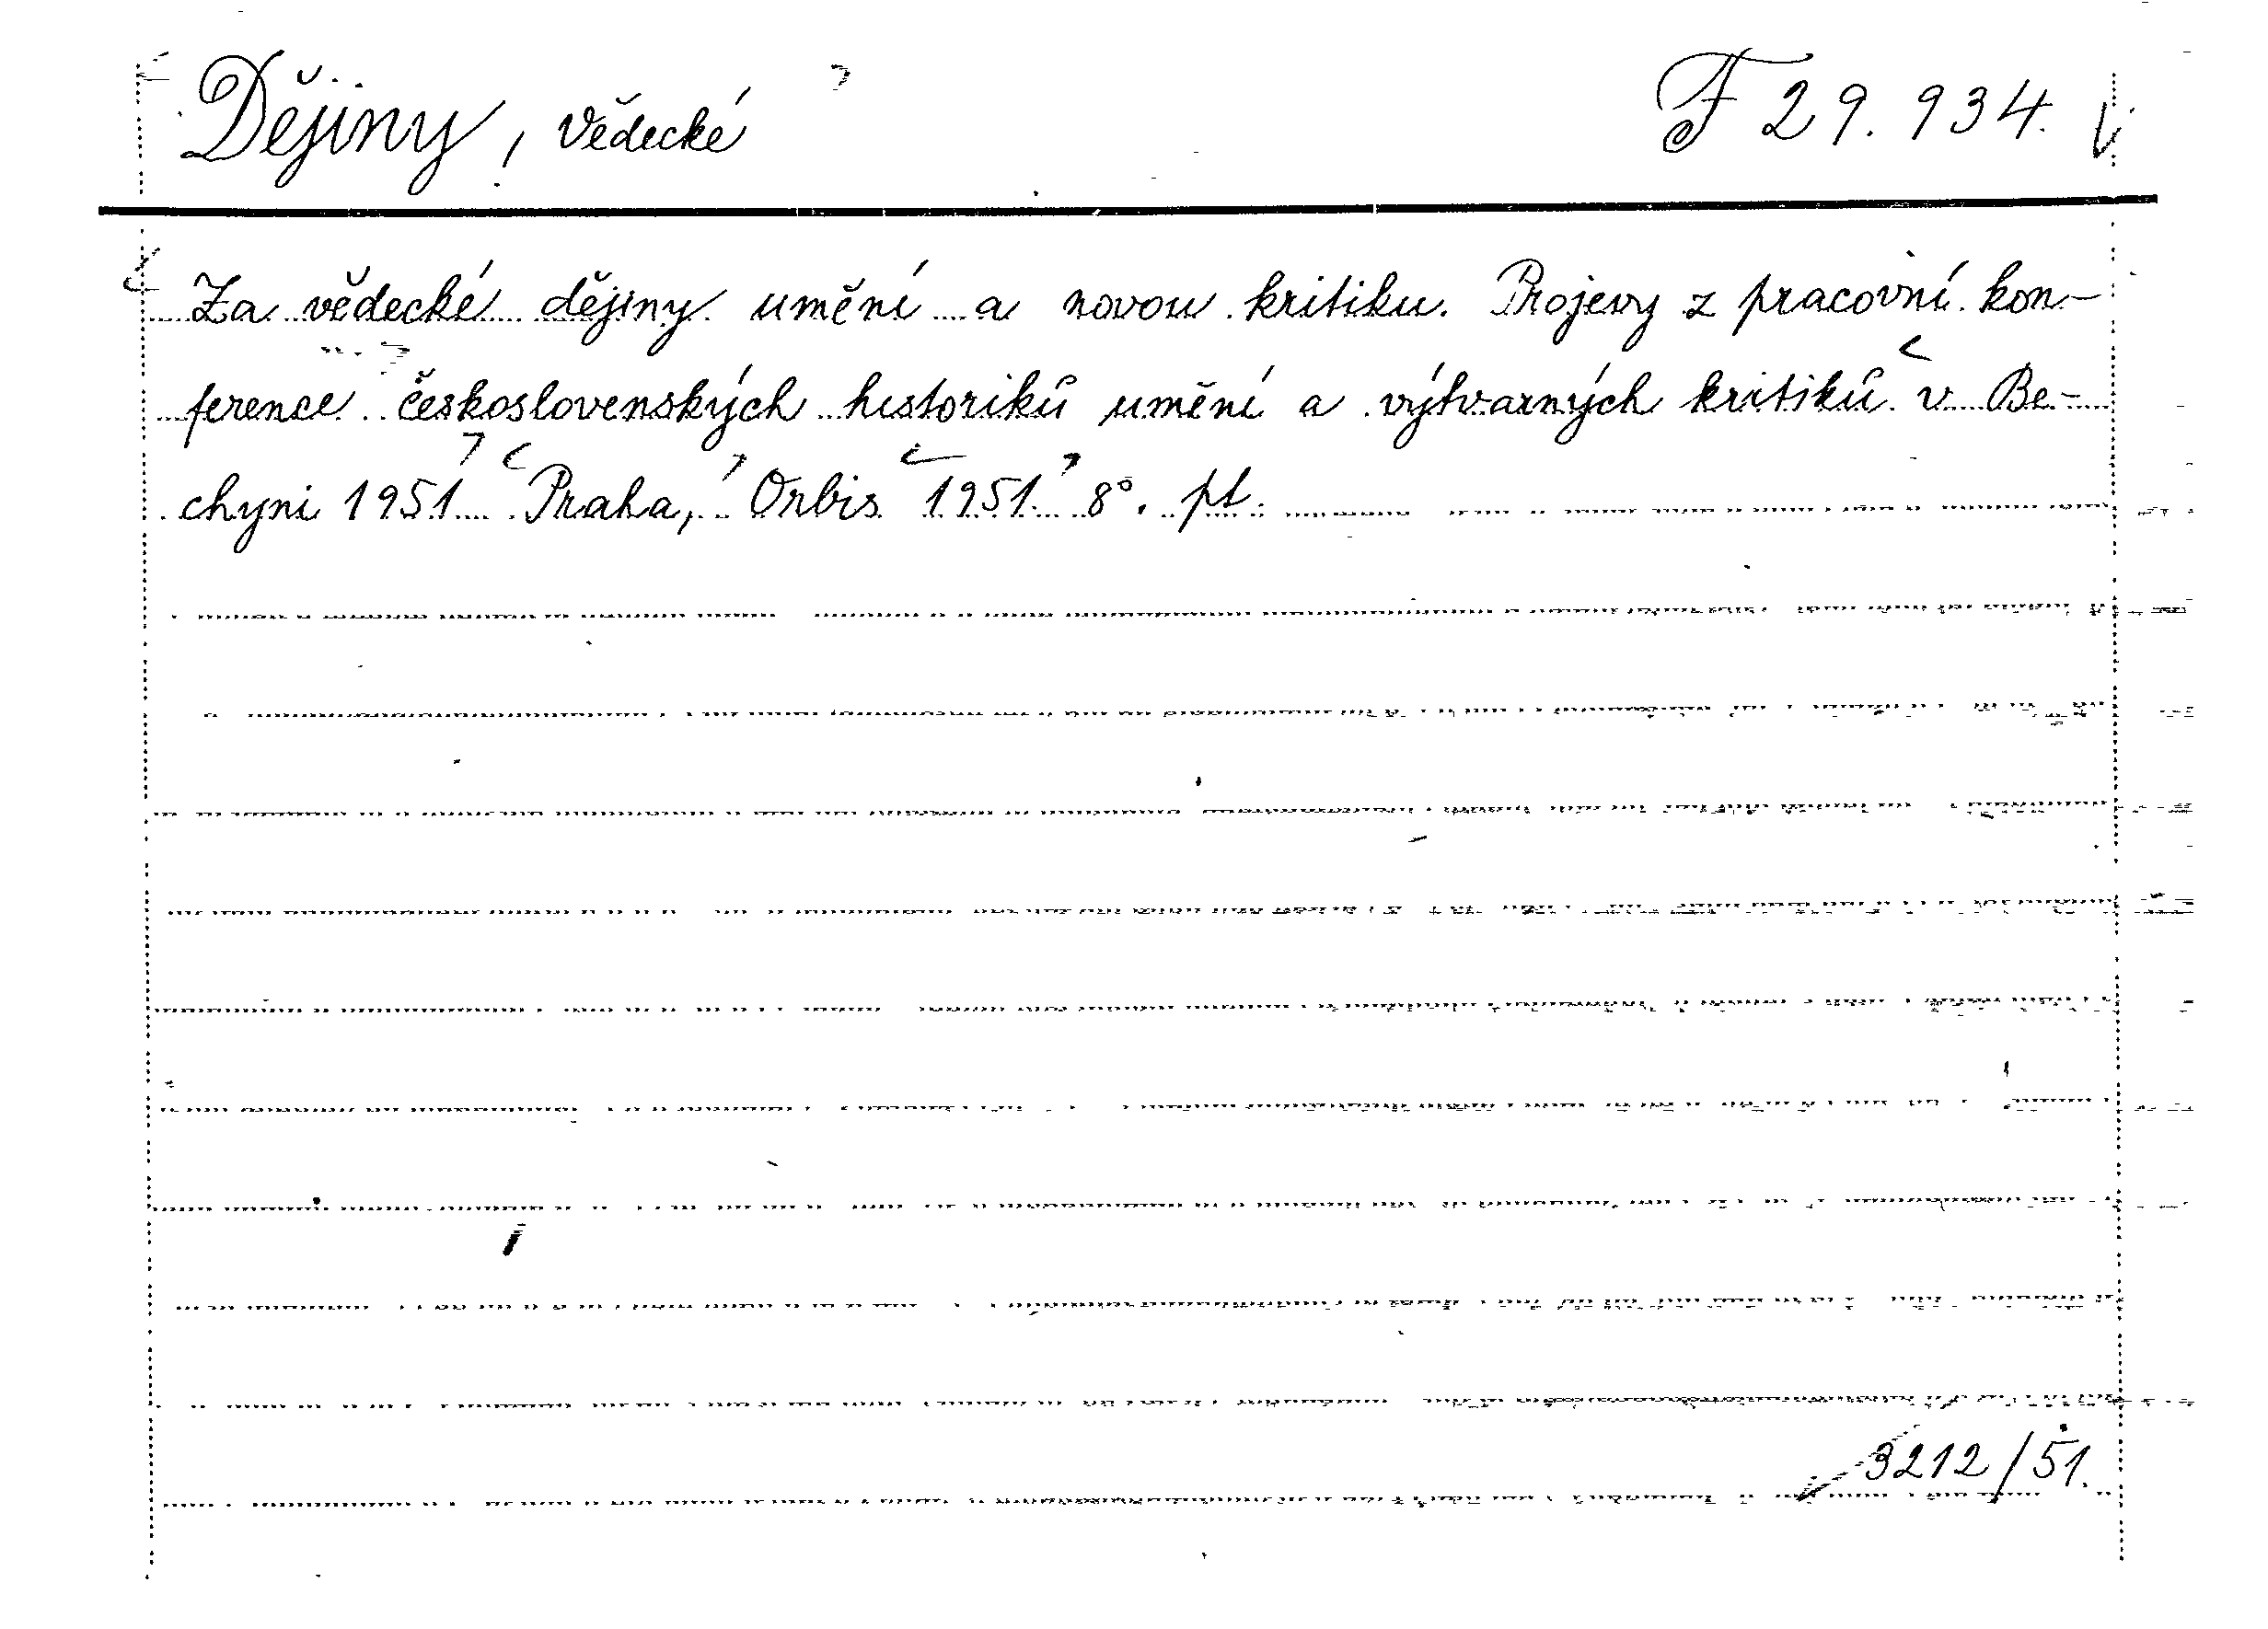 Dějiny, vědecké F 29.934.
Za vědecké dějiny umění a novou kritiku. Projevy z pracovní kon-
ference československých historiků umění a výtvarných kritiků v Be-
chyni 1951. Praha, Orbis 1951. 8°. pt.
3212/51.